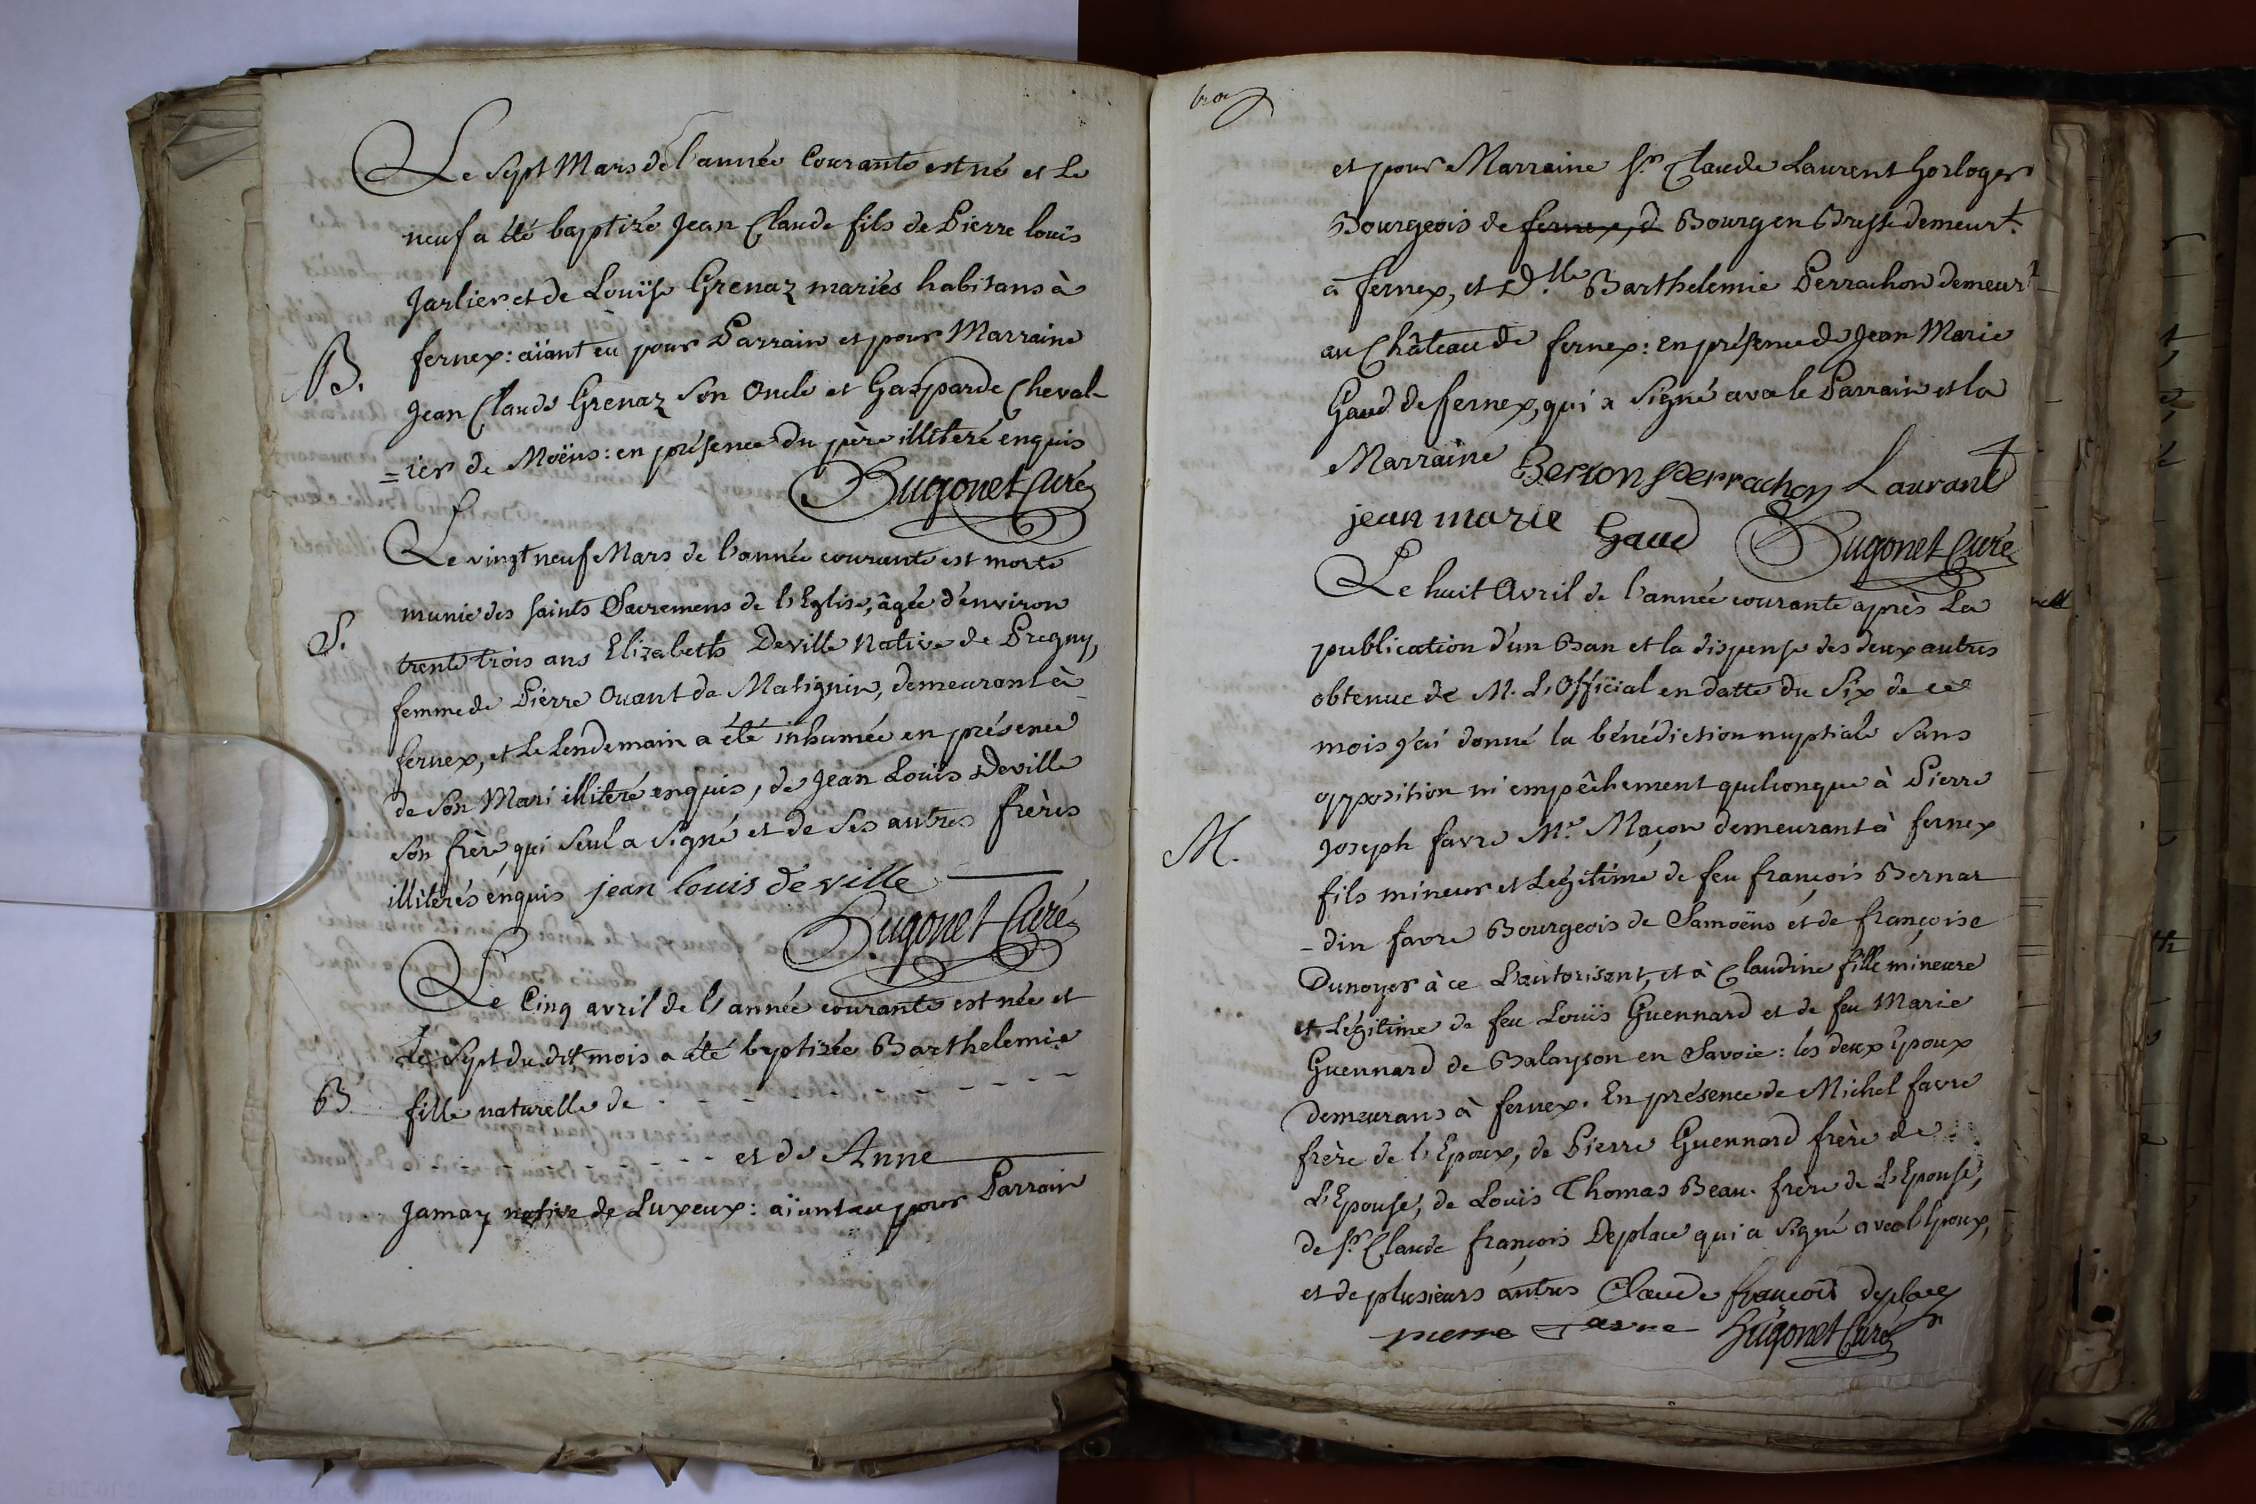 Le sept Mars de l'année Courante est né et Le
neuf a été baptizé Jean Claude fils de Pierre louis
Jarlier et de Louïse Grenaz mariés habitans à
B.
fernex: aïant eu pour Parrain et pour Marraine
Jean Claude Grenaz son Oncle et Gasparde Cheval-
=ier de Moëns: en présence du père illiteré enquis
Hugonet Curé
Le vingt neuf Mars de l'année courante est morte
munie des saints Sacremens de l'Eglise, âgée d'environ
S.
trente trois ans Elizabeth Deville Native de Pregny,
femme de Pierre Ouant de Matignin, demeurant à
fernex, et Le Lendemain a été inhumée en présence
de Son Mari illiteré enquis, de Jean Louis Deville
Son frère qui seul a signé et de ses autres frères
illiterés enquis jean louis de ville
Hugonet Curé
Le Cinq avril de l'année courante est née et
Le Sept du dit mois a été baptizée Barthelemie
B
fille naturelle de - - - - - - - -
- - - - - - - et de Anne
Jamay native de Luxeux: aïant eu pour Parrain
et pour Marraine Sr. Claude Laurent horloger
Bourgeois de fernex, d Bourg en Bresse demeurt.
à fernex, et D.lle Barthelemie Perrachon demeurt
au Château de fernex: en présence de Jean Marie
Gaud de fernex, qui a Signé avec le Parrain et la
Marraine Perrachon Laurant
jean marie Gaud Hugonet Curé
Le huit Avril de l'année courante après La
publication d'un Ban et la dispense des deux autres
obtenue de M. L'Official en datte du Six de ce
mois j'ai donné la bénédiction nuptiale sans
opposition ni empêchement quelconque à Pierre
M.
Joseph favre Me. Maçon demeurant à fernex
fils mineur et Légitime de feu françois Bernar
-din favre Bourgeois de Samoëns et de françoise
Dunoyer à ce L'autorisant, et à Claudine fille mineure
et Légitime de feu Louïs Guennard et de feu Marie
Guennard de Balayson en Savoie: les deux Epoux
demeurans à fernex. En présence de Michel favre
frère de l'Epoux, de Pierre Guennard frère de
L'Epouse, de Louïs Thomas Beau. frère de L'Epouse,
de Sr. Claude françois Deplace qui a Signé avec l'Epoux,
et de plusieurs autres Claude francois deplace
pierre favre Hugonet Curé